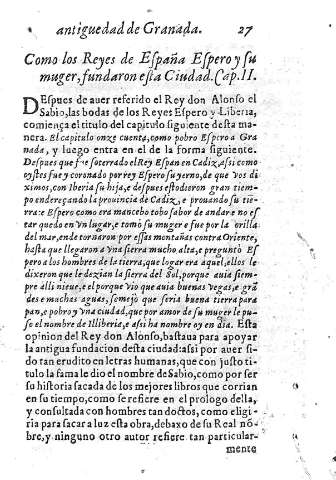 antiguedad de Granada. 27
Como los Reyes de España Espero y su
muger, fundaron esta Ciudad. Cap. II.
DEspues de auer referido el Rey don Alonso el
Sabio, las bodas de los Reyes Espero y Liberia,
comiença el titulo del capitulo siguiente desta ma
nera. El capitulo onze cuenta, como pobro Espero a Gra
nada, y luego entra en el de la forma siguiente.
Despues que fue soterrado el Rey Espan en Cadiz, assi como
oystes fue y coronado por rey Espero su yerno, de que vos di
ximos, con Iberia su hija, e despues estodieron gran tiem-
po endereçando la prouincia de Cadiz, e prouando su tie-
rra: e Espero como era mancebo touo sabor de andar e no es
tar quedo en vn lugar, e tomó su muger e fue por la orilla
del mar, ende tornaron por essas montañas contra Oriente,
hasta que llegaron a vna sierra mucho alta, e preguntò Es
pero a los hombres de la tierra, que logar era aquel, e ellos le
dixeron que le dezian la sierra del Sol, porque auia siem-
pre alli nieue, e el porque vio que auia buenas vegas, e grã
des e muchas aguas, semejò que seria buena tierra para
pan, e pobro y vna ciudad, que por amor de su muger le pu-
so el nombre de Illiberia, e assi ha nombre oy en dia. Esta
opinion del Rey don Alonso, bastaua para apoyar
la antigua fundacion desta ciudad: assi por auer si-
do tan erudito en letras humanas, que con justo ti-
tulo la fama le dio el nombre de Sabio, como por ser
su historia sacada de los mejores libros que corrian
en su tiempo, como se refiere en el prologo della, y
y consultada con hombres tan doctos, como eligi-
ria para sacar a luz esta obra, debaxo de su Real nõ-
bre, y ninguno otro autor refiere tan particular-
mente